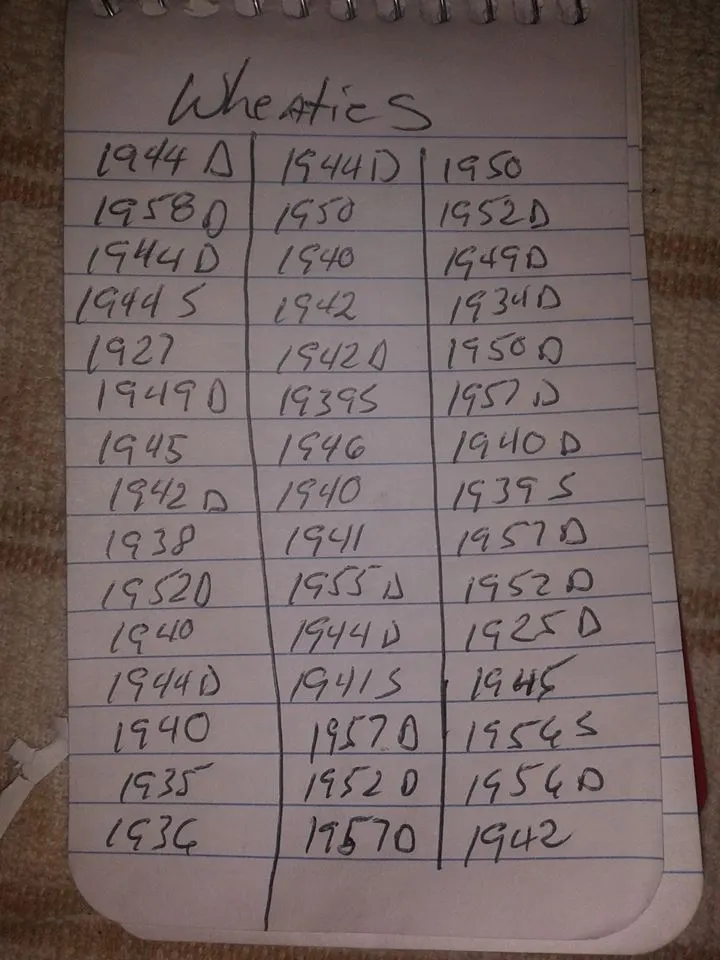 Wheaties
1944 D 1944 D 1950
1958 D 1950 1952 D
1944 D 1940 1949 D
1944 S 1942 1934 D
1927 1942 D 1950 D
1949 D 1939 S 1957 D
1945 1946 1940 D
1942 D 1940 1939 S
1938 1941 1957 D
1952 D 1955 D 1952 D
1940 1944 D 1925 D
1944 D 1941 S 1945
1940 1957 D S
1935 1952 D D
1936 1957 D 1942